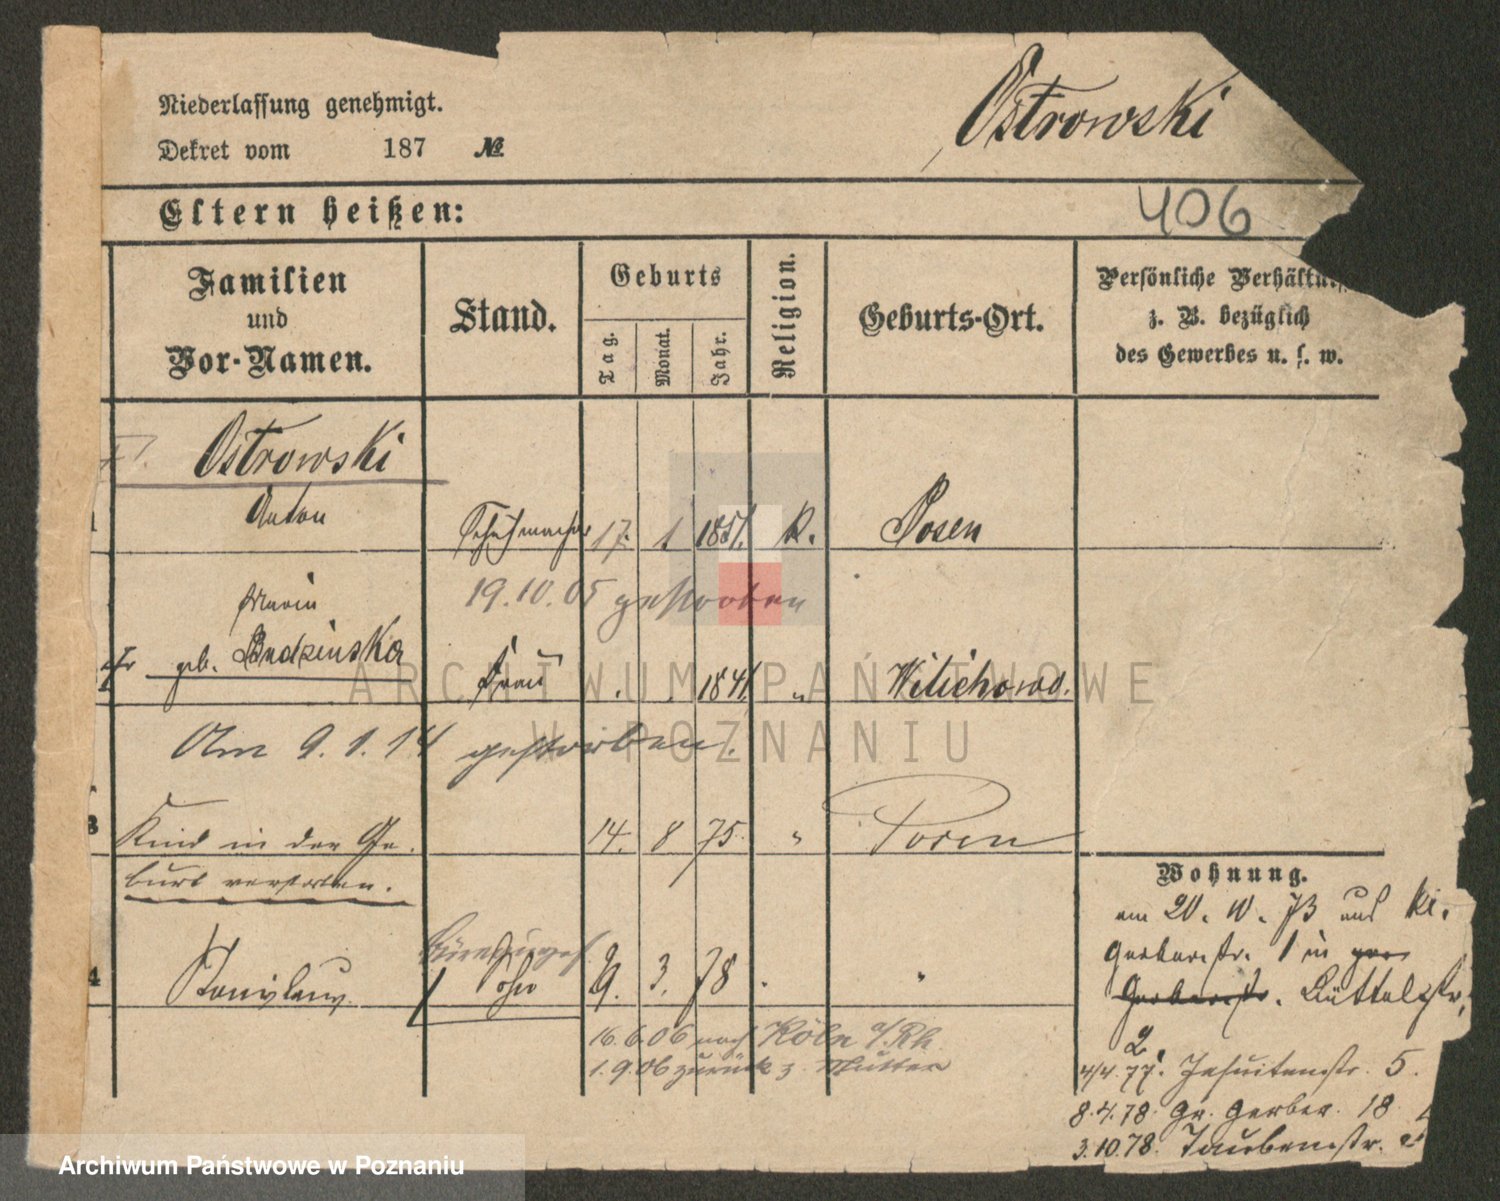 Niederlassung genehmigt.
Ostrowski
Dekret vom 187 №
Eltern heißen:
406
Familien und Vor-Namen.
Stand.
Geburts
Tag. Monat. Jahr.
Religion.
Geburts-Ort.
Persönliche Verhältnis
z. B. bezüglich
des Gewerbes u. s. w.
Ostrowski
1 Anton Schuhmacher 17. 1 1851. K. Posen
19.10.05 gestorben
Maria
geb. Budzinska Frau 1841. " Wilichowo.
Am 9.1.14 gestorben.
3 Kind in der Ge- 14. 8 75. " Posen
burt verstorben.
4 Stanislaus Sohn 9. 3. 78 "
16.6.06 nach Köln a/Rh.
1.9.06 zurück z. Mutter
Wohnung.
am 20. 10. 73 aus Kl.
Gerberstr. 1 in
Gerberstr. Büttelstr.
2.
4/4.77. Jesuitenstr. 5.
8.4.78. Gr. Gerber. 18
3.10.78. Taubenstr.
ARCHIWUM PAŃSTWOWE
W POZNANIU
Archiwum Państwowe w Poznaniu